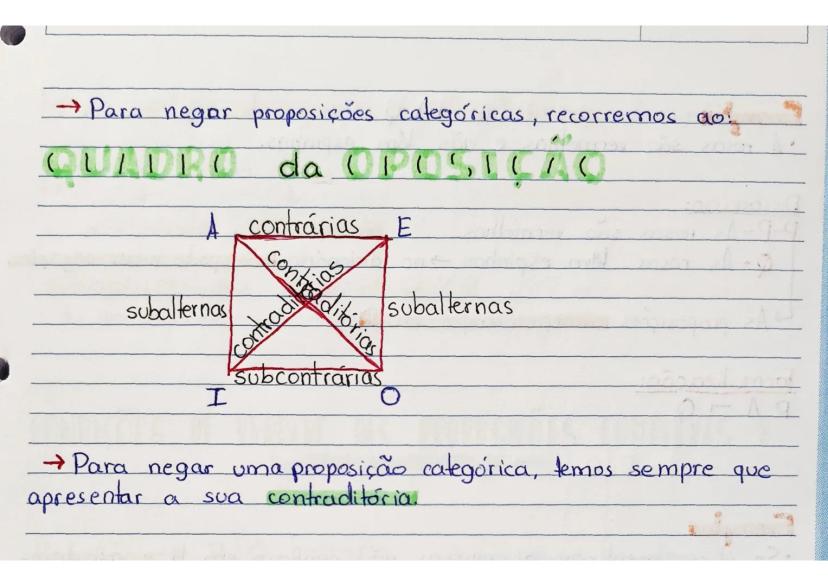 → Para negar proposições categóricas, recorremos ao:
QUADRO da OPOSIÇÃO
A contrárias E
contraditórias
contraditórias
subalternas subalternas
subcontrárias
I O
→ Para negar uma proposição categórica, temos sempre que
apresentar a sua contraditória.